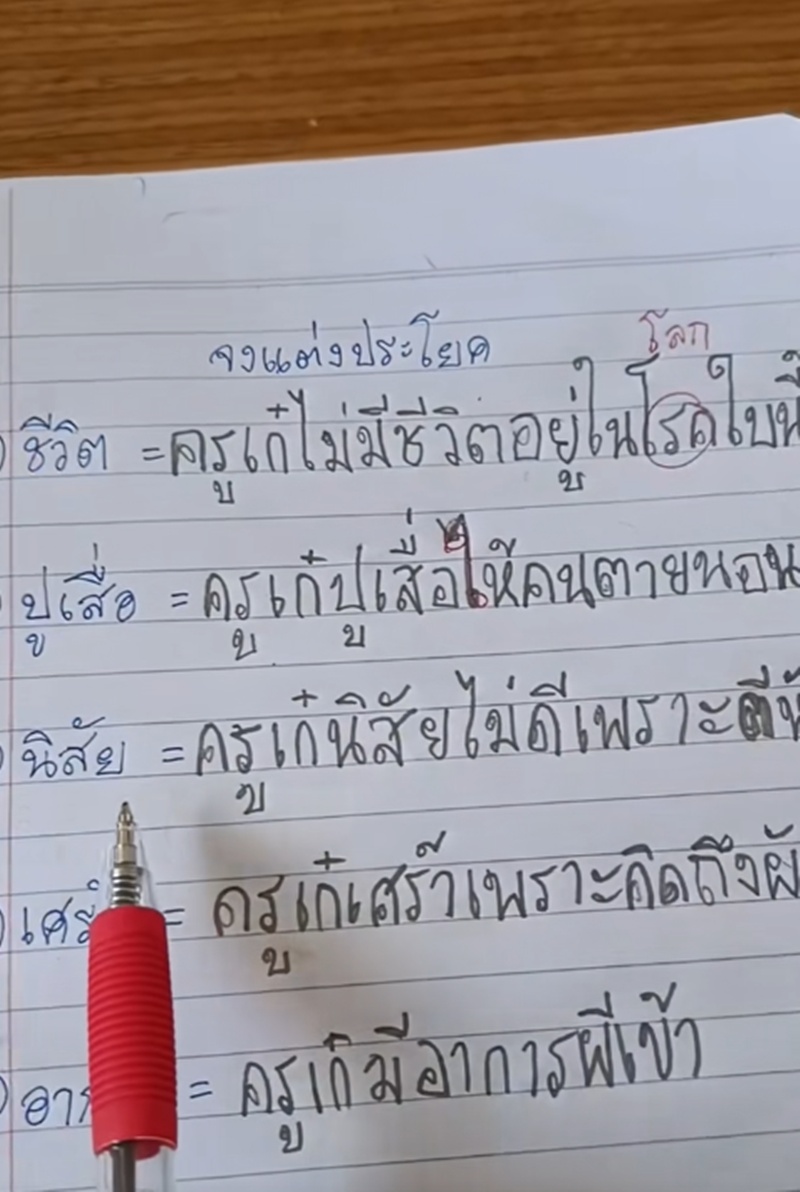 จงแต่งประโยค
โลก
ชีวิต = ครูเก๋ไม่มีชีวิตอยู่ในโรคใบนี้
ปูเสื่อ = ครูเก๋ปูเสื่อให้คนตายนอน
นิสัย = ครูเก๋นิสัยไม่ดีเพราะ
= ครูเก๋เศร้าเพราะคิดถึง
= ครูเก๋มีอาการผีเข้า